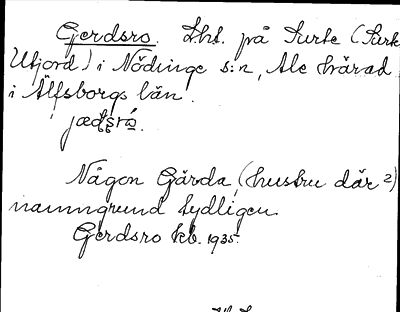 Gerdsro. Lht. på Surte (Surte
Utjord) i Nödinge s:n, Ale härad
i Älfsborgs län.
Någon Gärda (hustru där ²)
namngrund tydligen
Gerdsro kb. 1935.